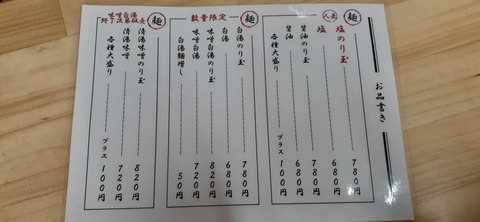 お品書き
麺
人気
塩のり玉 780円
塩 680円
醤油のり玉 780円
醤油 680円
各種大盛り プラス 100円
麺
数量限定
白湯のり玉 780円
白湯 680円
味噌白湯のり玉 820円
味噌白湯 720円
白湯麺増し 50円
麺
味噌白湯
終了次第販売
清湯味噌のり玉 820円
清湯味噌 720円
各種大盛り プラス 100円